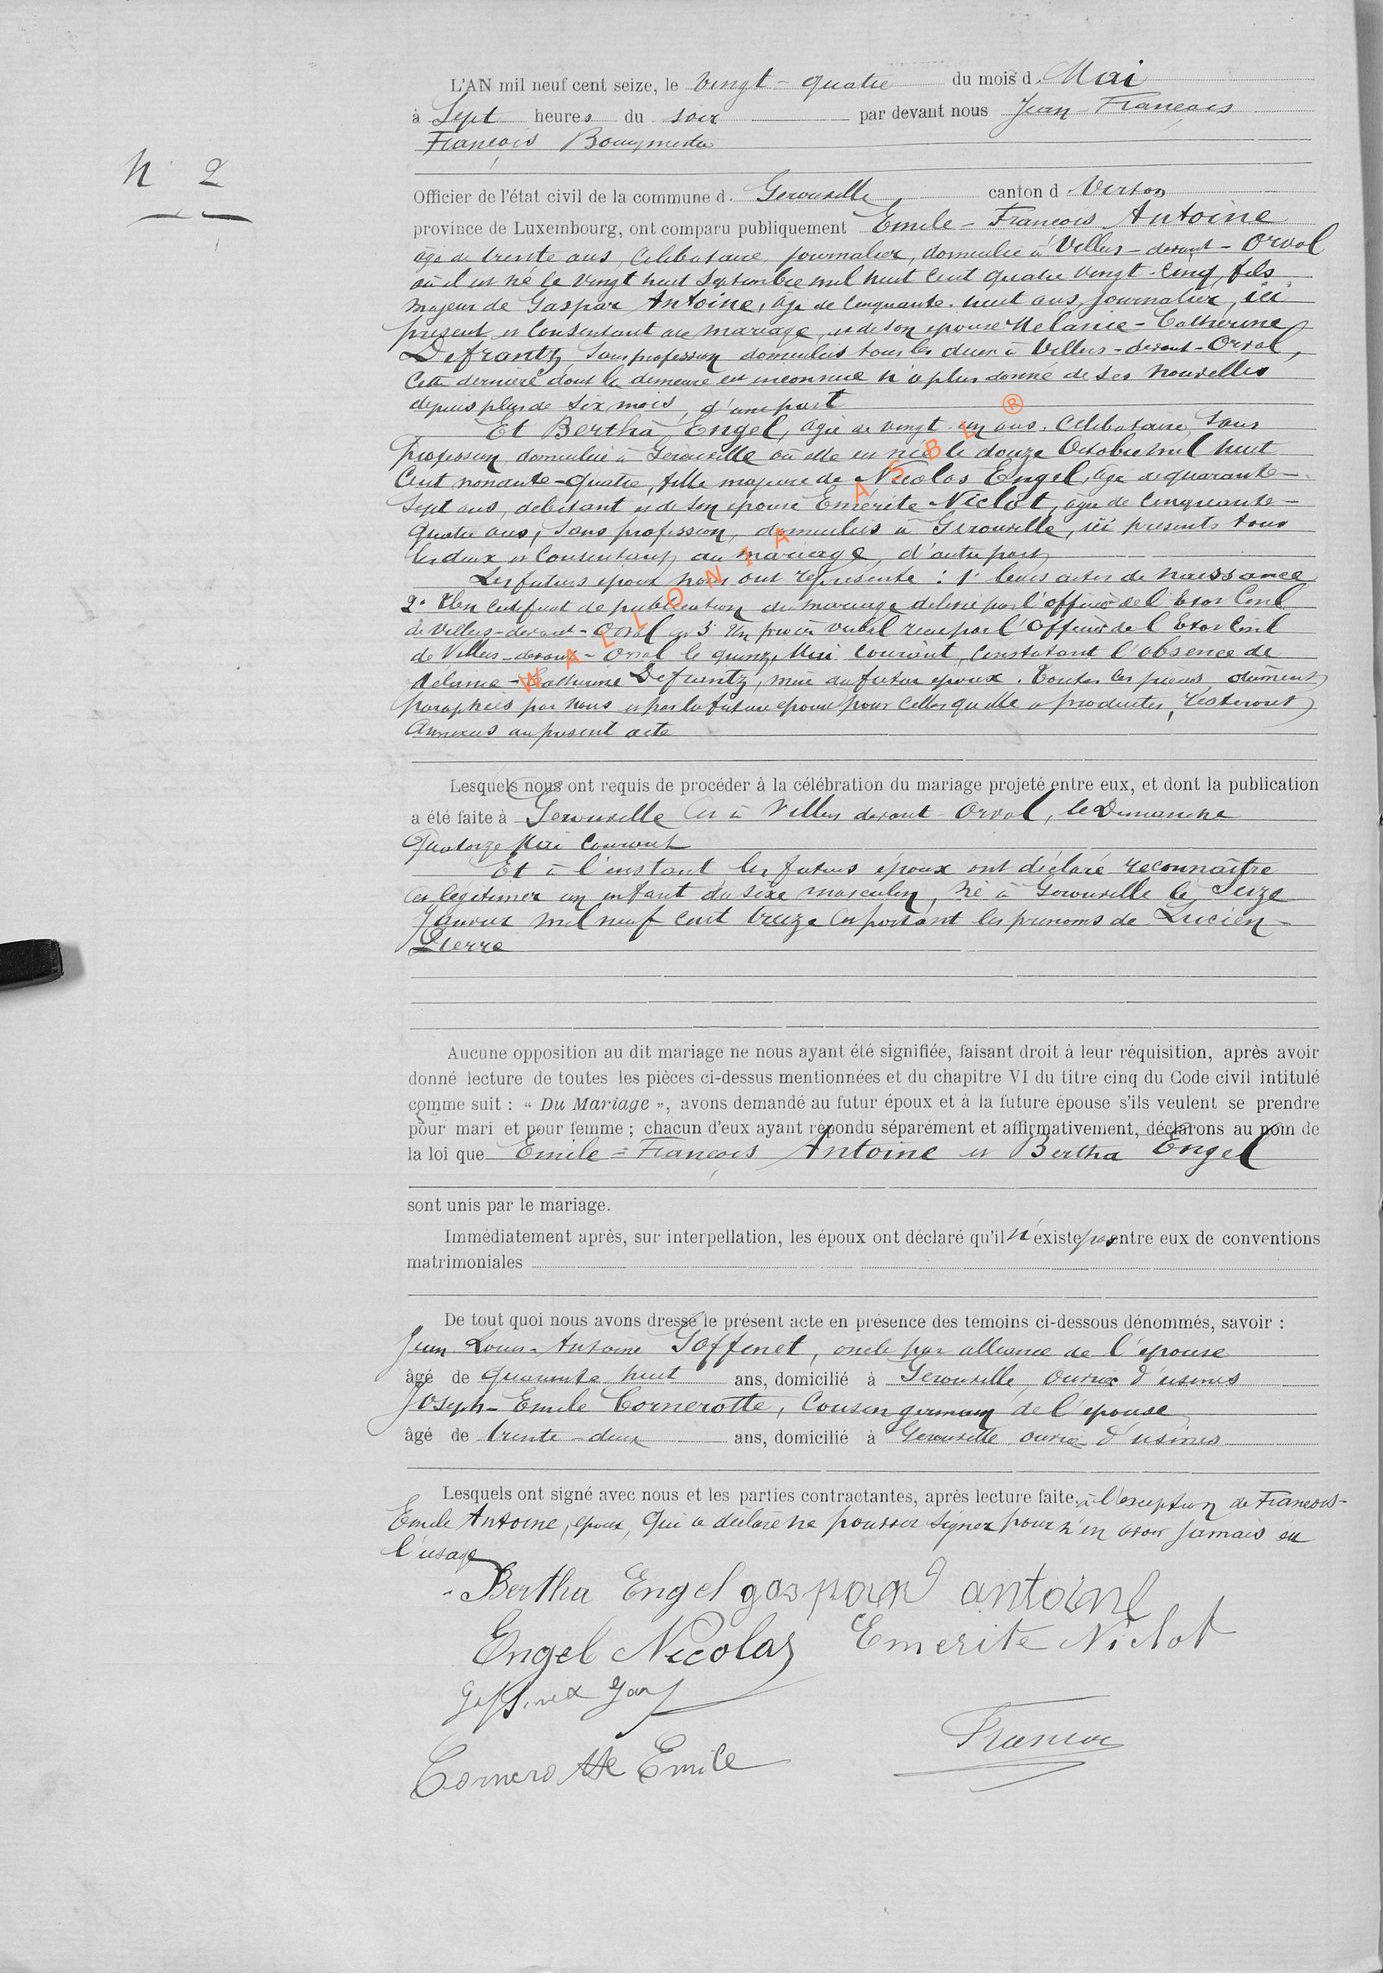 L'AN mil neuf cent seize, le vingt-quatre du mois d. Mai
à Sept heures du soir par devant nous Jean François
François Bourgmestre
N° 2
Officier de l'état civil de la commune d. Gérouville canton d Virton
province de Luxembourg, ont comparu publiquement Emile-François Antoine
âgé de trente ans, célibataire, journalier, domicilié à Villers-devant-Orval
où il est né le vingt huit Septembre mil huit cent quatre vingt-cinq, fils
majeur de Gaspar Antoine, âgé de cinquante-huit ans, journalier, ici
présent et consentant au mariage, et de son épouse Mélanie-Catherine
Defrantz sans profession domiciliés tous les deux à Villers-devant-Orval,
cette dernière dont la demeure est inconnue n'a plus donné de ses nouvelles
depuis plus de six mois, d'une part
Et Bertha Engel, âgée de vingt-un ans, célibataire, sans
profession, domiciliée à Gérouville où elle est née le douze Octobre mil huit
cent nonante-quatre, fille majeure de Nicolas Engel, âgé de quarante-
sept ans, débitant et de son épouse Emérite Niclot, âgée de cinquante-
quatre ans, sans profession, domiciliés à Gérouville, ici présents tous
les deux et consentants au mariage, d'autre part
Les futurs époux nous ont représenté : 1° leurs actes de naissance
2° Un certificat de publication de mariage délivré par l'officier de l'Etat Civil
de Villers-devant-Orval et 3° Un procès verbal reçu par l'Officier de l'Etat Civil
de Villers-devant-Orval le quinze Mai courant, constatant l'absence de
Mélanie-Catherine Defrantz, mère du futur époux. Toutes les pièces dûment
paraphées par nous et par la future épouse pour celles qu'elle a produites, resteront
annexées au présent acte
WALLONIA ASBL ®
Lesquels nous ont requis de procéder à la célébration du mariage projeté entre eux, et dont la publication
a été faite à Gérouville et à Villers devant Orval, le Dimanche
Quatorze Mai courant
Et à l'instant les futurs époux ont déclaré reconnaître
et légitimer un enfant du sexe masculin, né à Gérouville le Seize
Janvier mil neuf cent treize et portant les prénoms de Lucien-
Pierre
Aucune opposition au dit mariage ne nous ayant été signifiée, faisant droit à leur réquisition, après avoir
donné lecture de toutes les pièces ci-dessus mentionnées et du chapitre VI du titre cinq du Code civil intitulé
comme suit : « Du Mariage », avons demandé au futur époux et à la future épouse s'ils veulent se prendre
pour mari et pour femme ; chacun d'eux ayant répondu séparément et affirmativement, déclarons au nom de
la loi que Emile-François Antoine et Bertha Engel
sont unis par le mariage.
Immédiatement après, sur interpellation, les époux ont déclaré qu'il n'existe pas entre eux de conventions
matrimoniales
De tout quoi nous avons dressé le présent acte en présence des témoins ci-dessous dénommés, savoir :
Jean Louis-Antoine Goffinet, oncle par alliance de l'épouse
âgé de quarante huit ans, domicilié à Gérouville, ouvrier d'usines
Joseph-Emile Cornerotte, cousin germain de l'épouse
âgé de trente-deux ans, domicilié à Gérouville ouvrier d'usines
Lesquels ont signé avec nous et les parties contractantes, après lecture faite, à l'exception de François-
Emile Antoine, époux, qui a déclaré ne pouvoir signer pour n'en avoir jamais eu
l'usage
Bertha Engel gaspard antoine
Engel Nicolas Emerite Niclot
Goffinet
Cornerotte Emile François